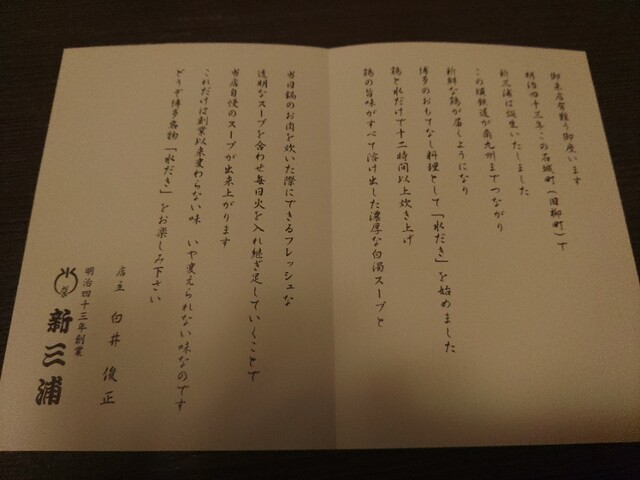 御来店有難う御座います
明治四十三年この石城町（旧柳町）で
新三浦は誕生いたしました
この頃鉄道が南九州までつながり
新鮮な鶏が届くようになり
博多のおもてなし料理として「水だき」を始めました
鶏と水だけで十二時間以上炊き上げ
鶏の旨味がすべて溶け出した濃厚な白濁スープと
当日鶏のお肉を炊いた際にできるフレッシュな
透明なスープを合わせ毎日火を入れ継ぎ足していくことで
当店自慢のスープが出来上がります
これだけは創業以来変わらない味　いや変えられない味なのです
どうぞ博多名物「水だき」をお楽しみ下さい
店主　白井　俊正
明治四十三年創業
新三浦